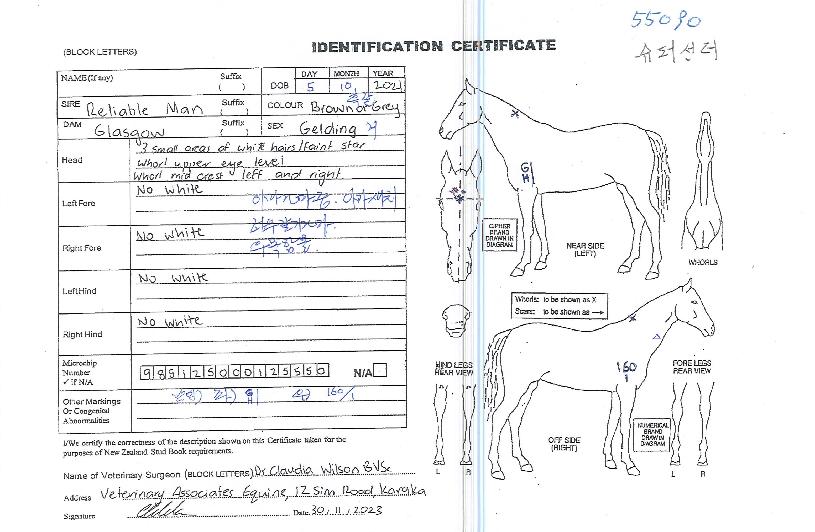 55090
(BLOCK LETTERS)
IDENTIFICATION CERTIFICATE
NAME (if any)
Suffix
( )
DOB
DAY MONTH YEAR
5 10 2021
SIRE Reliable Man
Suffix
( )
COLOUR Brown or Grey
DAM Glasgow
Suffix
( )
SEX Gelding
Head
3 small areas of white hairs/faint star
Whorl upper eye level
Whorl mid crest left and right
Left Fore
No white
Right Fore
No white
Left Hind
No white
Right Hind
No white
Microchip
Number
✓ if N/A
985125000125550
N/A
Other Markings
Or Congenital
Abnormalities
G
H
160/1
I/We certify the correctness of the description shown on this Certificate taken for the
purposes of New Zealand Stud Book requirements.
Name of Veterinary Surgeon (BLOCK LETTERS) Dr Claudia Wilson BVSc
Address Veterinary Associates Equine, 12 Sim Road, Karaka
Signature
Date 30/11/2023
G
H
CIPHER
BRAND
DRAWN IN
DIAGRAM
NEAR SIDE
(LEFT)
WHORLS
Whorls: to be shown as X
Scars: to be shown as →
HIND LEGS
REAR VIEW
L R
160
1
OFF SIDE
(RIGHT)
NUMERICAL
BRAND
DRAWN IN
DIAGRAM
FORE LEGS
REAR VIEW
L R